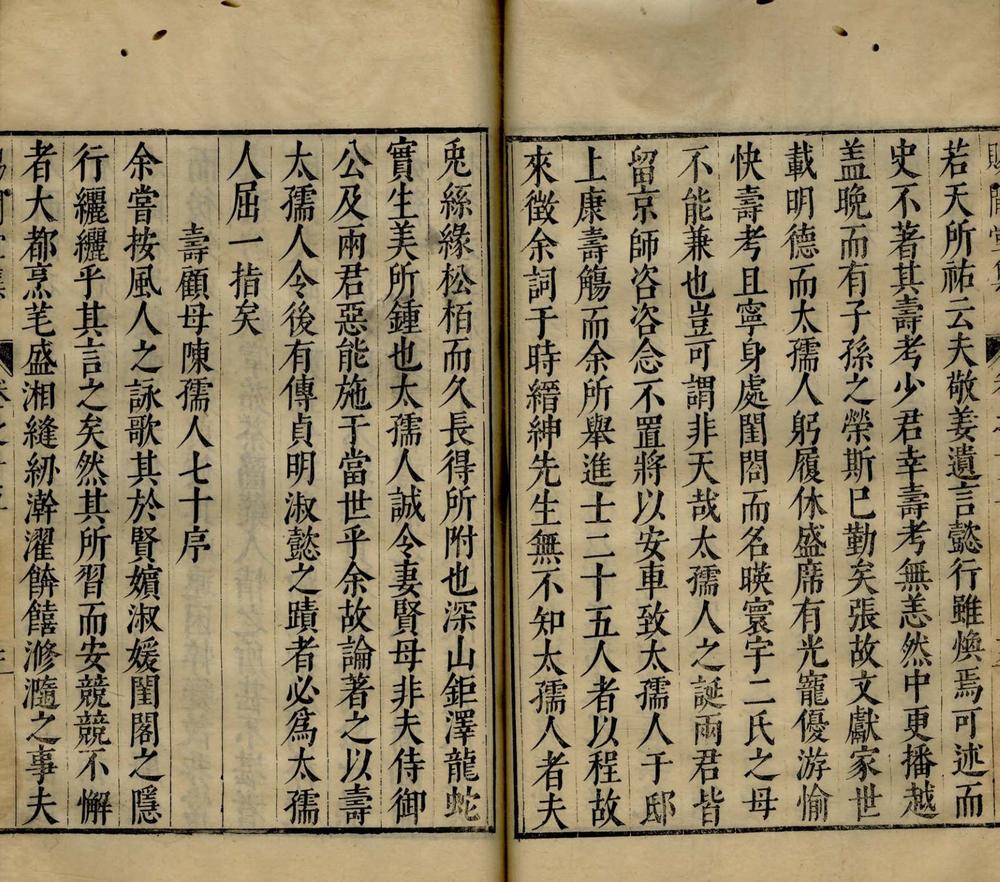 若天所祐云夫敬姜遺言懿行雖煥焉可述而
史不著其壽考少君幸壽考無恙然中更播越
盖晚而有子孫之榮斯已勤矣張故文獻家世
載明德而太孺人躬履休盛席有光寵優游愉
快壽考且寧身處閨閤而名暎寰宇二氏之母
不能兼也豈可謂非天哉太孺人之誕兩君皆
留京師咨咨念不置將以安車致太孺人于邸
上康壽觴而余所舉進士二十五人者以程故
來徵余詞于時縉紳先生無不知太孺人者夫
兎絲緣松栢而久長得所附也深山鉅澤龍蛇
實生美所鍾也太孺人誠令妻賢母非夫侍御
公及兩君惡能施于當世乎余故論著之以壽
太孺人令後有傳貞明淑懿之蹟者必爲太孺
人屈一指矣
壽顧母陳孺人七十序
余嘗按風人之詠歌其於賢嬪淑媛閨閣之隱
行纚纚乎其言之矣然其所習而安競競不懈
者大都烹芼盛湘縫紉澣濯餴饎滫瀡之事夫